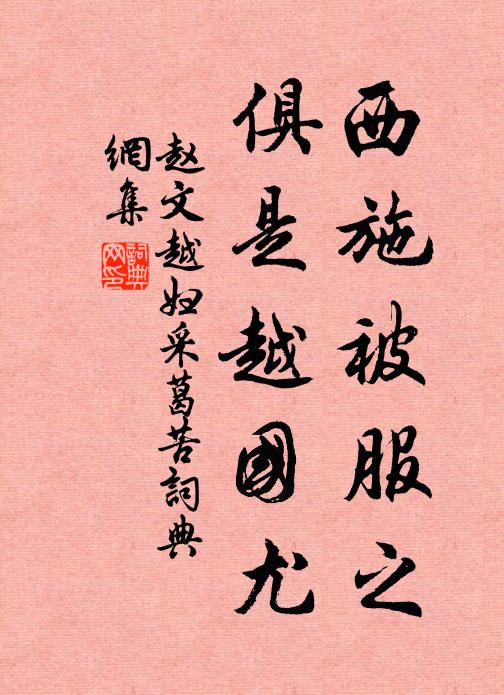 西施被服之
俱是越國尤
赵文越妇采葛苦詞典
網集
詞典
网印